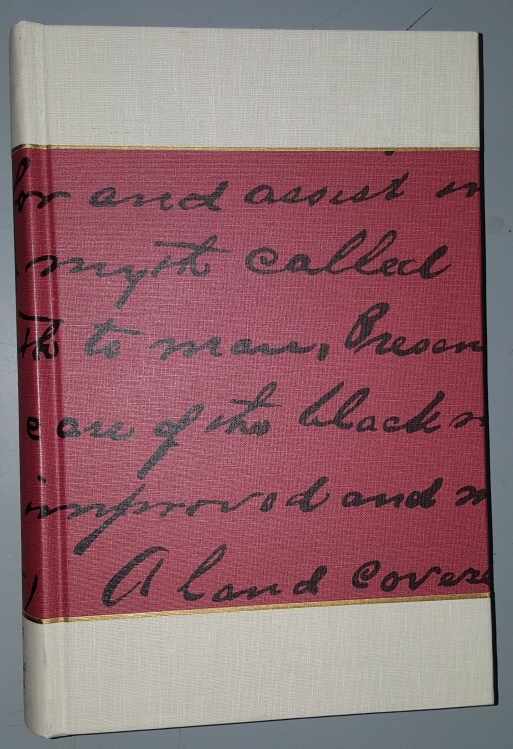 or and assist in
myth called
th to man, Presen
care of the black
improved and m
A land covere